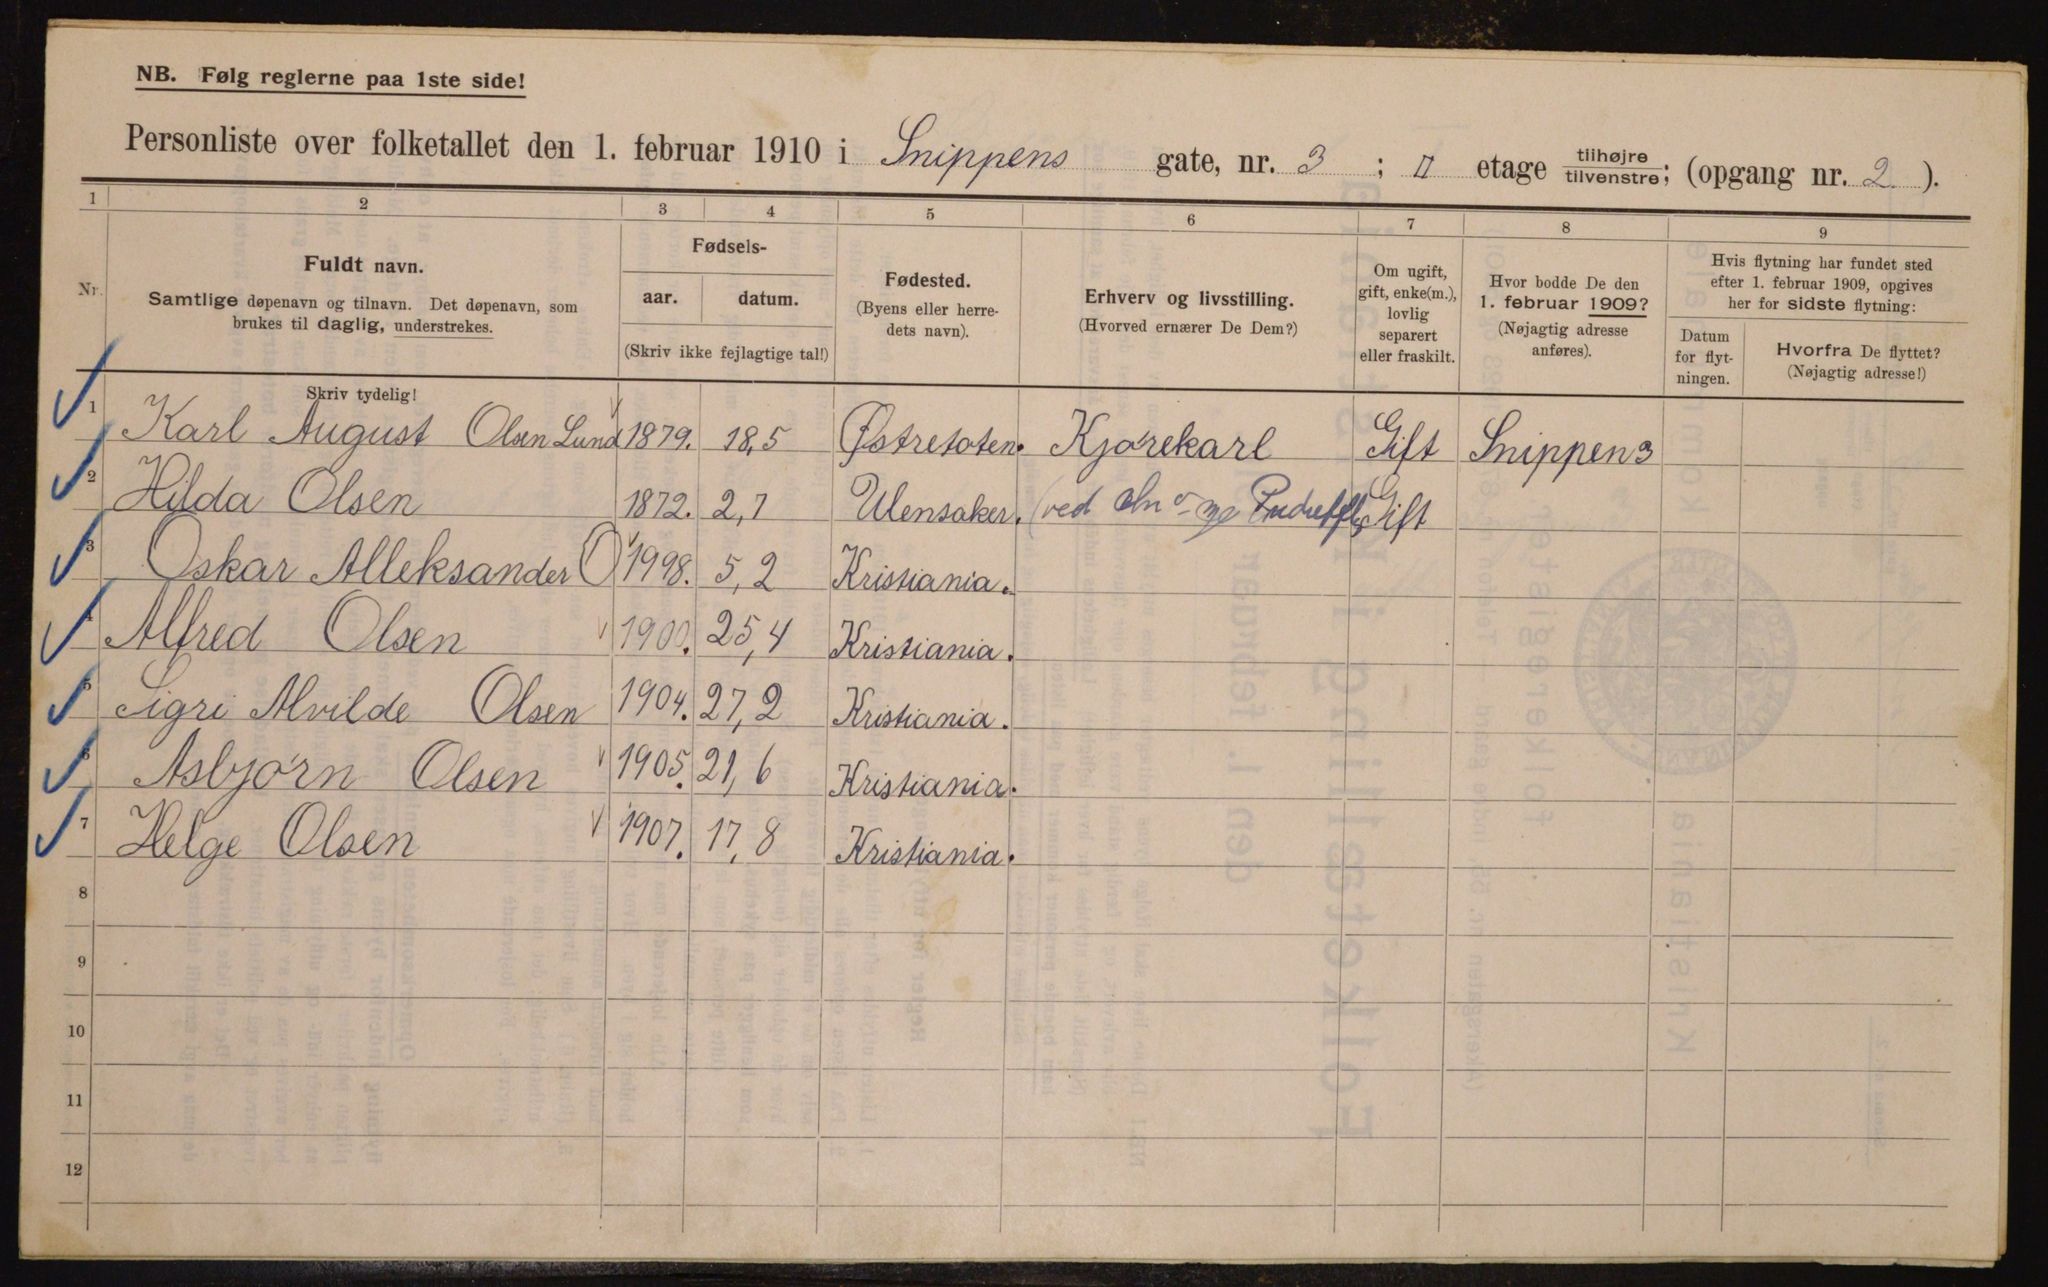 NB. Følg reglerne paa 1ste side!
Personliste over folketallet den 1. februar 1910 i Snippens gate, nr. 3 ; II etage tilhøjre/tilvenstre; (opgang nr. 2 ).
1 2 3 4 5 6 7 8 9
Nr. Fuldt navn. Samtlige døpenavn og tilnavn. Det døpenavn, som brukes til daglig, understrekes.
Fødsels-
aar. datum.
(Skriv ikke fejlagtige tal!)
Fødested. (Byens eller herredets navn).
Erhverv og livsstilling. (Hvorved ernærer De Dem?)
Om ugift, gift, enke(m.), lovlig separert eller fraskilt.
Hvor bodde De den 1. februar 1909? (Nøjagtig adresse anføres).
Hvis flytning har fundet sted efter 1. februar 1909, opgives her for sidste flytning:
Datum for flytningen.
Hvorfra De flyttet? (Nøjagtig adresse!)
Skriv tydelig!
1 Karl August Olsen Lund 1879. 18,5 Østretoten. Kjørekarl Gift Snippen 3
2 Hilda Olsen 1872. 2,7 Ulensaker. (ved Gift
3 Oskar Alleksander O 1998. 5,2 Kristiania.
4 Alfred Olsen 1900. 25,4 Kristiania.
5 Sigri Alvilde Olsen 1904. 27,2 Kristiania.
6 Asbjørn Olsen 1905. 21,6 Kristiania.
7 Helge Olsen 1907. 17,8 Kristiania.
8
9
10
11
12